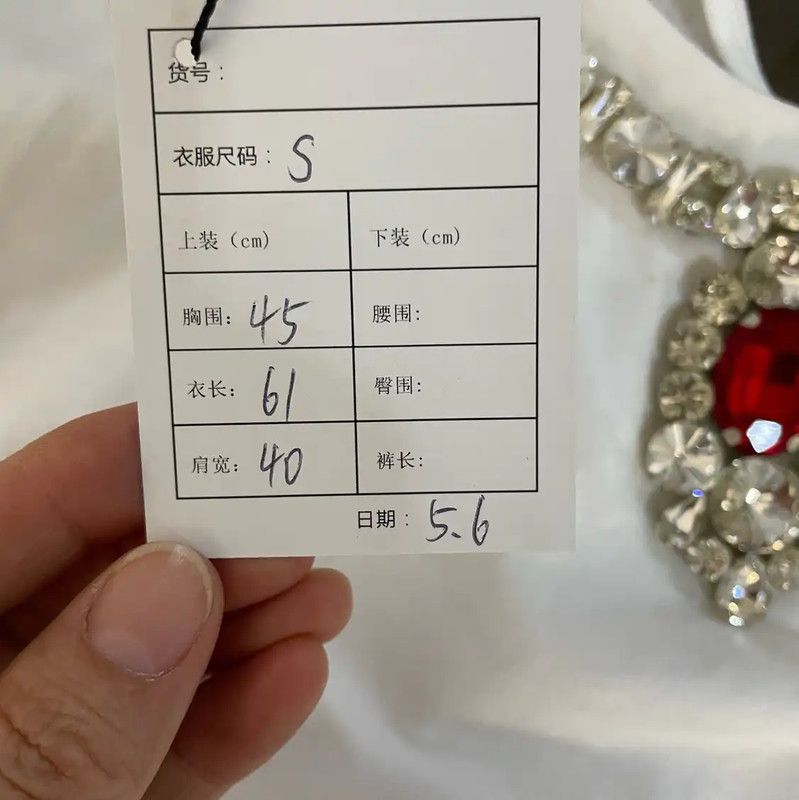 货号：
衣服尺码：S
上装（cm） 下装（cm）
胸围：45 腰围：
衣长：61 臀围：
肩宽：40 裤长：
日期：5.6